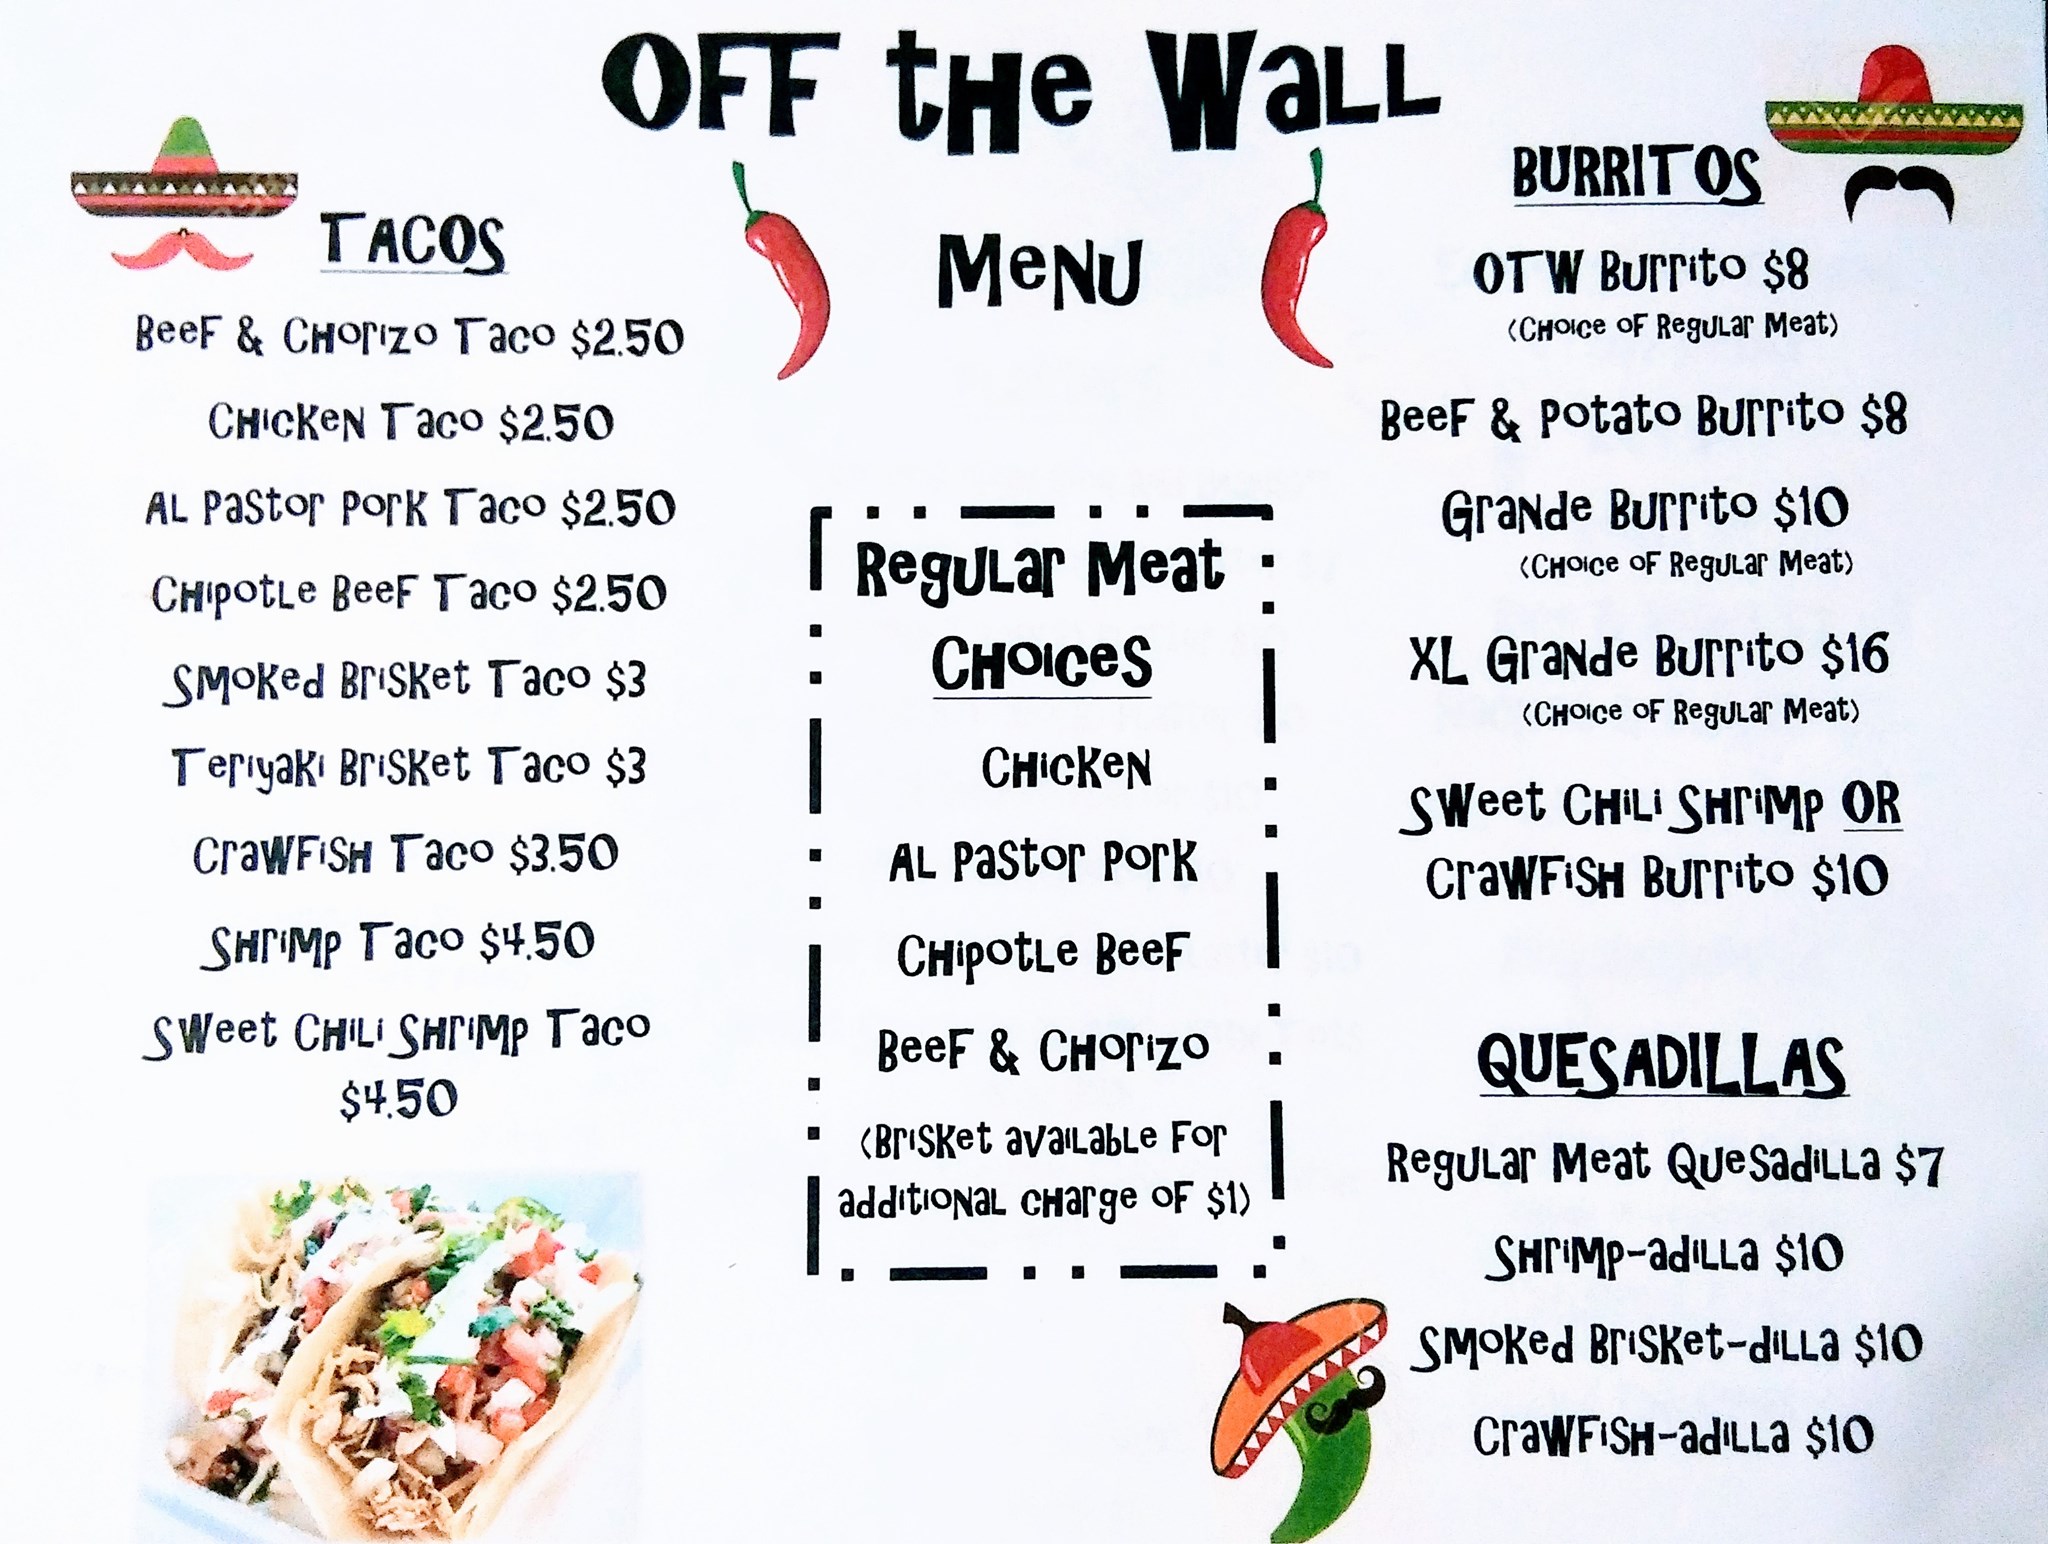 OFF the Wall
Menu
TACOS
Beef & Chorizo Taco $2.50
Chicken Taco $2.50
Al Pastor Pork Taco $2.50
Chipotle Beef Taco $2.50
Smoked Brisket Taco $3
Teriyaki Brisket Taco $3
Crawfish Taco $3.50
Shrimp Taco $4.50
Sweet Chili Shrimp Taco
$4.50
Regular Meat
Choices
Chicken
Al Pastor Pork
Chipotle Beef
Beef & Chorizo
(Brisket available for
additional charge of $1)
BURRITOS
OTW Burrito $8
(Choice of Regular Meat)
Beef & Potato Burrito $8
Grande Burrito $10
(Choice of Regular Meat)
XL Grande Burrito $16
(Choice of Regular Meat)
Sweet Chili Shrimp OR
Crawfish Burrito $10
QUESADILLAS
Regular Meat Quesadilla $7
Shrimp-adilla $10
Smoked Brisket-dilla $10
Crawfish-adilla $10